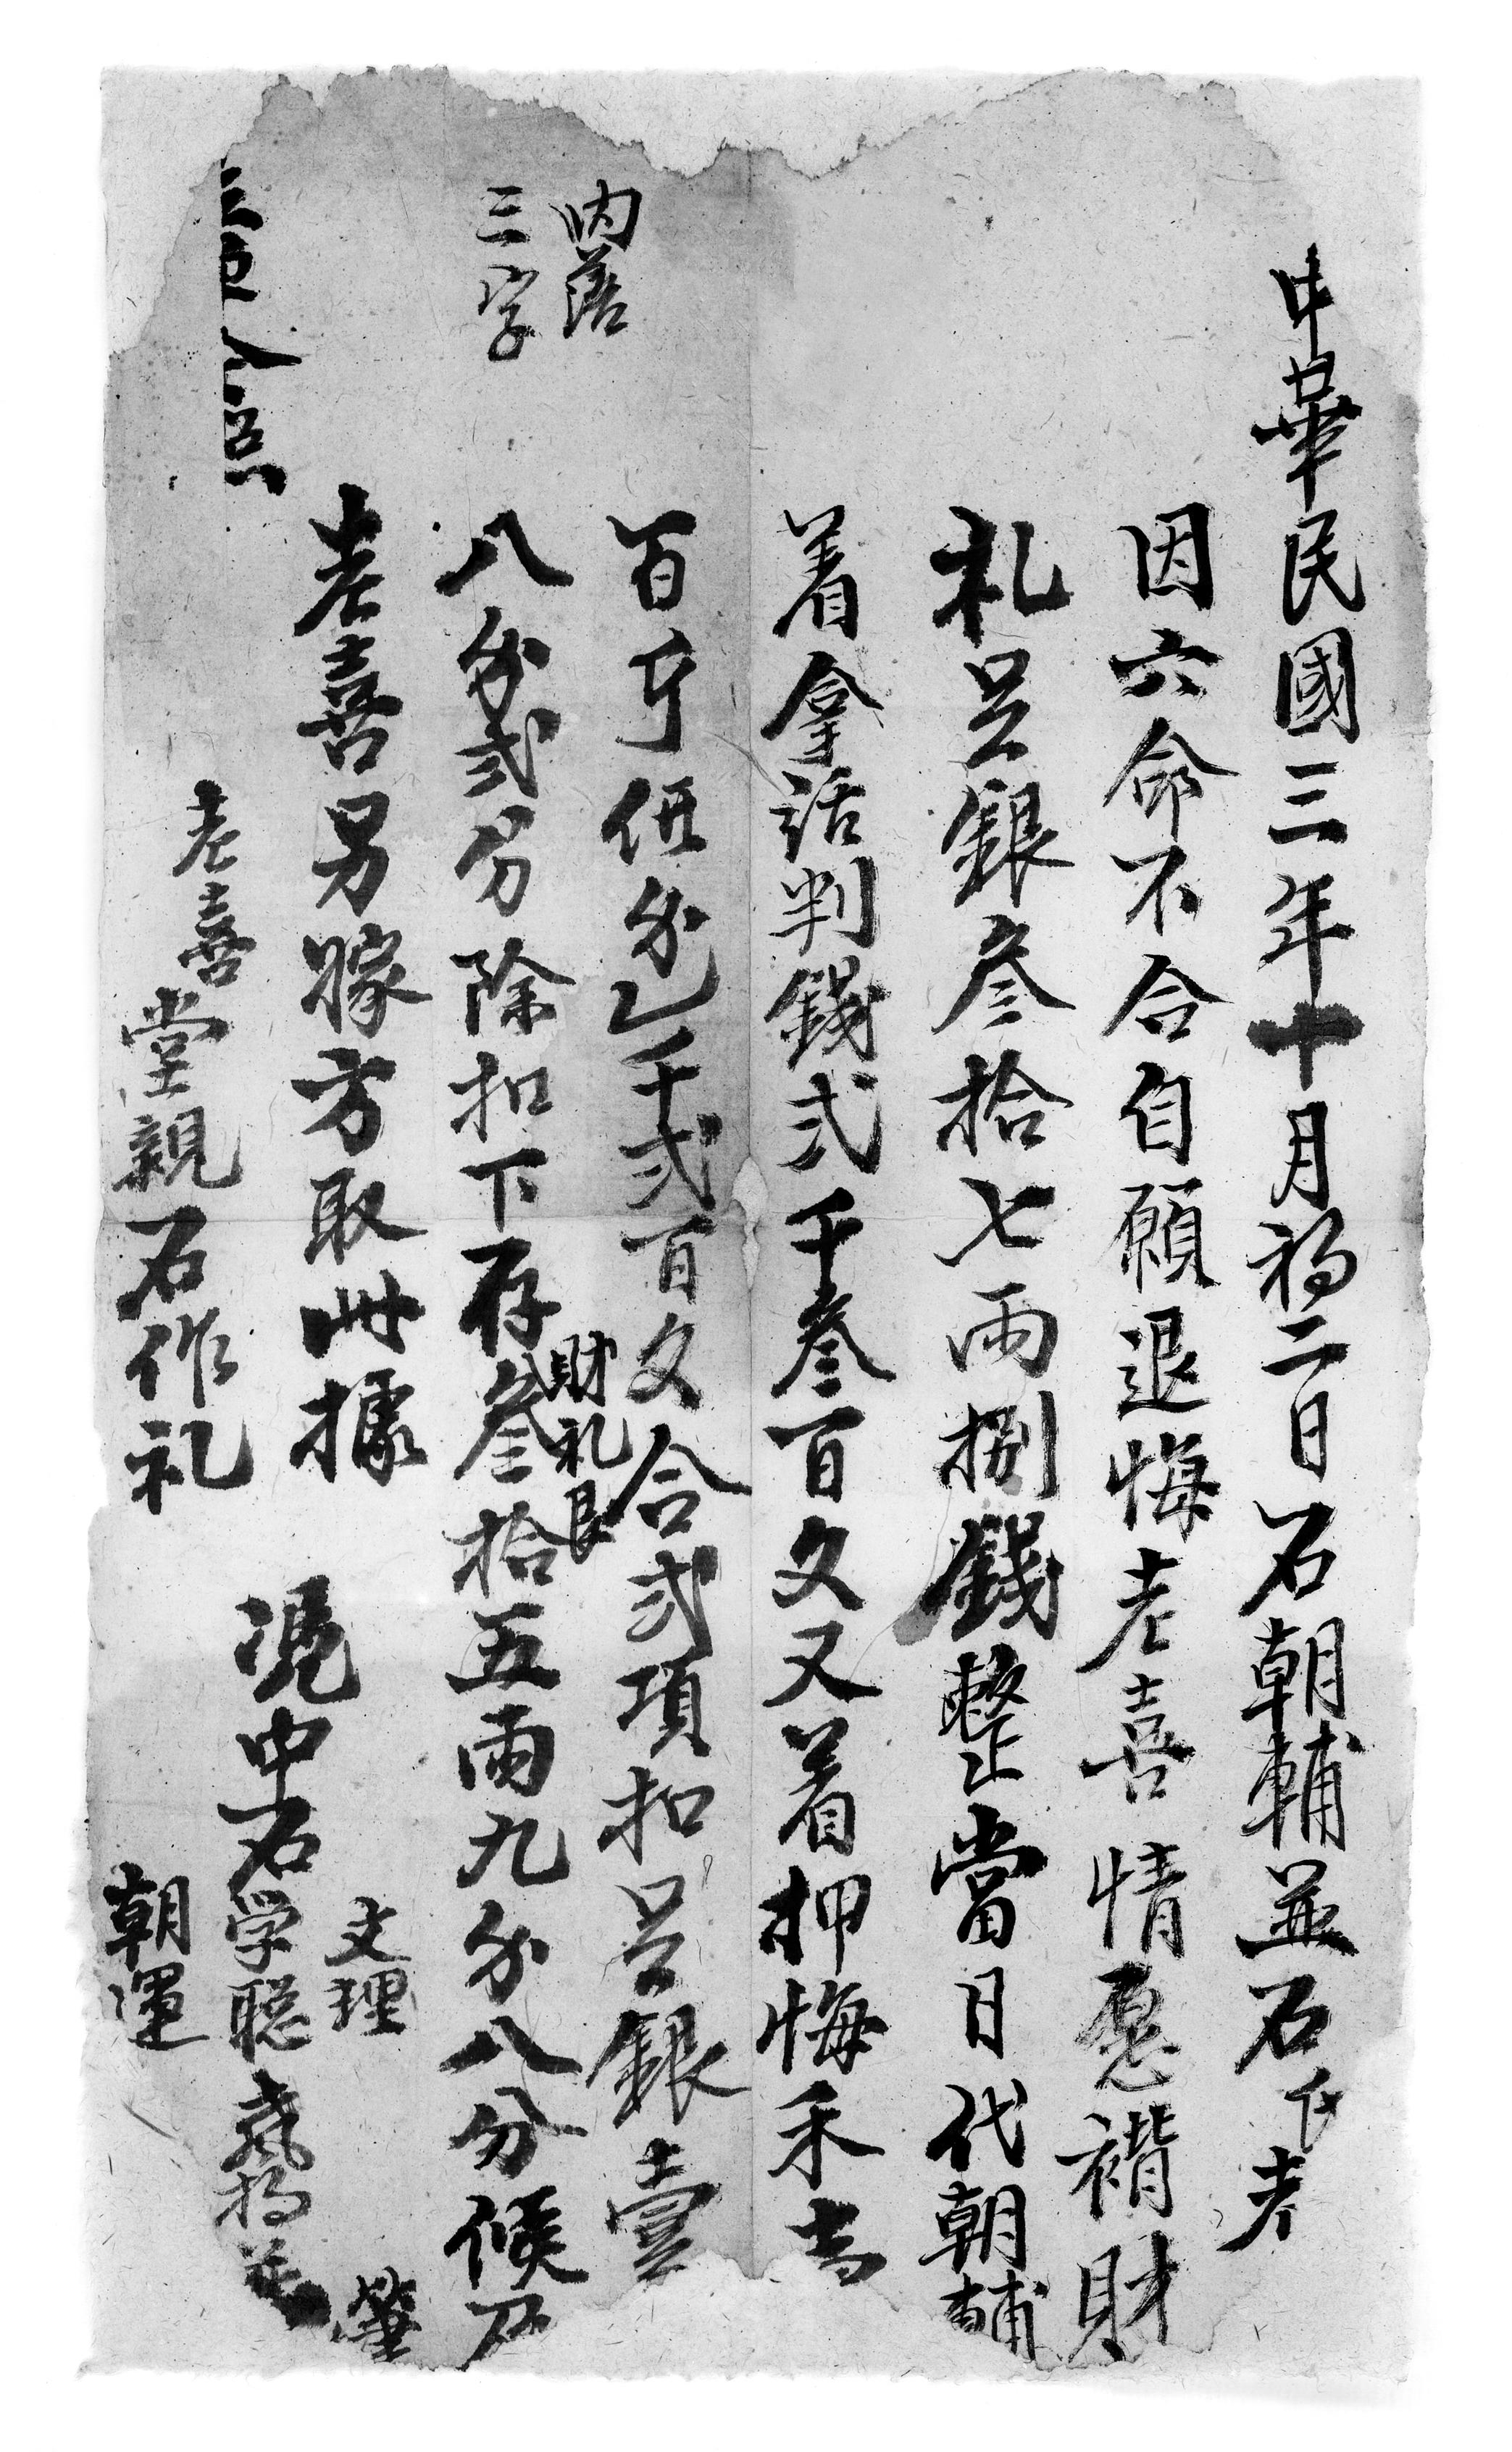 中華民國三年十月初二日石朝輔並石氏老
因六命不合自願退悔老喜情愿備財
礼呈銀叁拾七兩捌錢整當日代朝輔
着拿話判錢弍千叁百文又着押悔禾吉
百斤伍分乙千弍百文合弍項扣呈銀壹
八分弍分除扣下存叁拾五兩九分八分候石
財礼艮
老喜另嫁方取此據
内落
三字
憑中石
文理
学聪
朝運
筆
老喜堂親石作礼